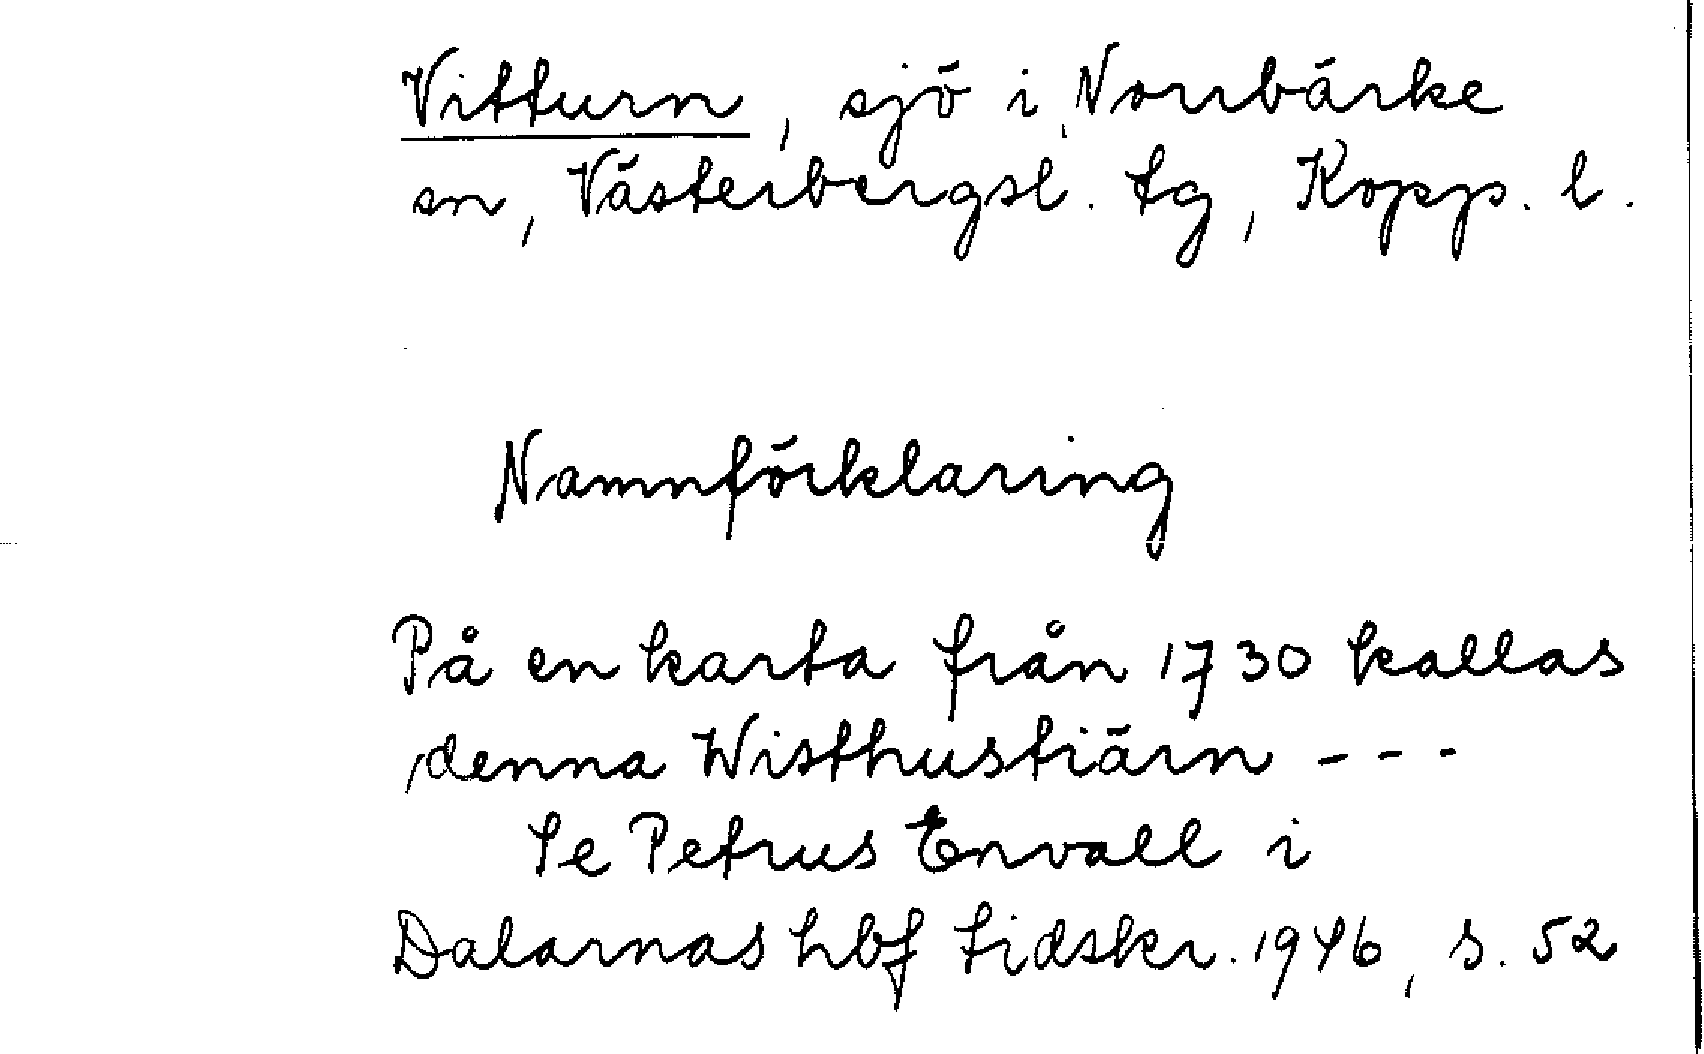 Vitturn, sjö i Norrbärke
sn, Västerbergsl. tg, Kopp. l.
Namnförklaring
På en karta från 1730 kallas
denna Wisthustiärn - - -
Se Petrus Envall i
Dalarnas hbf tidskr. 1946, s. 52